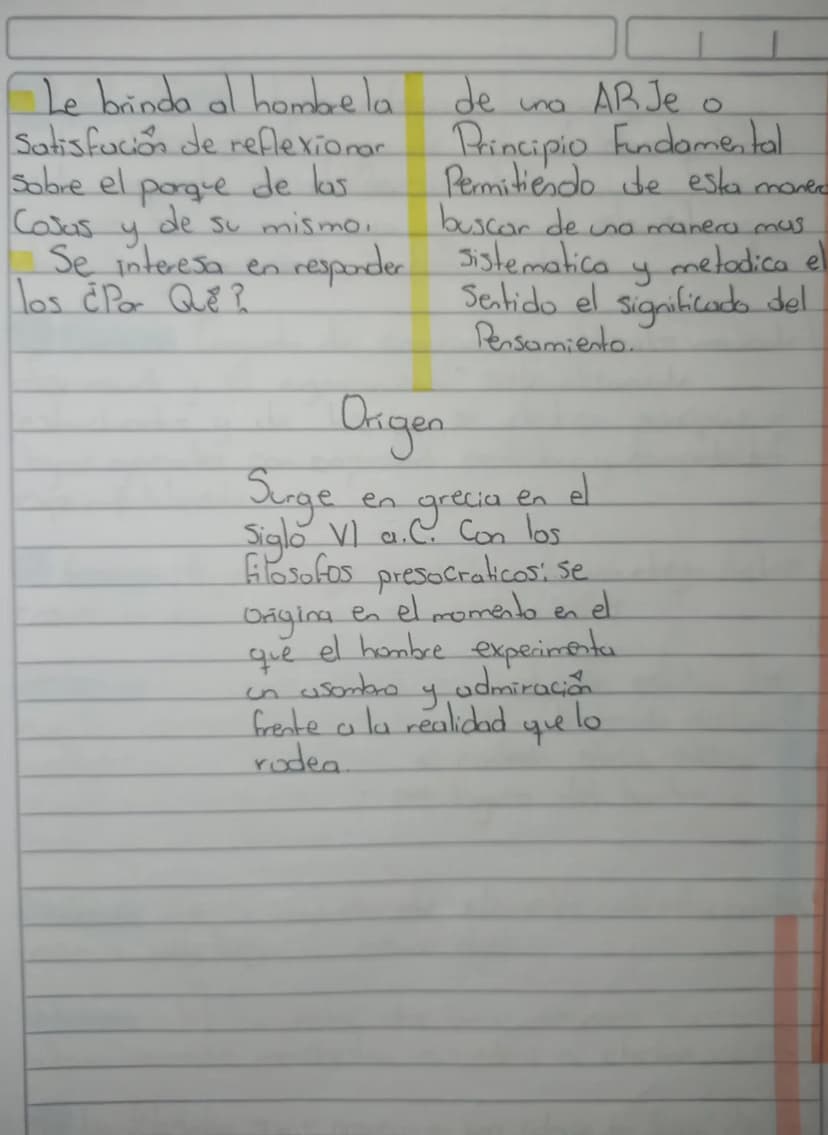 Le brinda al hombre la
satisfación de reflexionar
sobre el porque de las
Cosas y de su mismo.
Se interesa en responder
los ¿Por Qué?
de una ARJe o
Principio Fundamental
Permitiendo de esta maner
buscar de una manera mas
sistematica y metodica el
Sentido el significado del
Pensamiento.
Origen
Surge en grecia en el
Siglo VI a.C. Con los
filosofos presocraticos: se
origina en el momento en el
que el hombre experimenta
un asombro y admiración
frente a la realidad que lo
rodea.